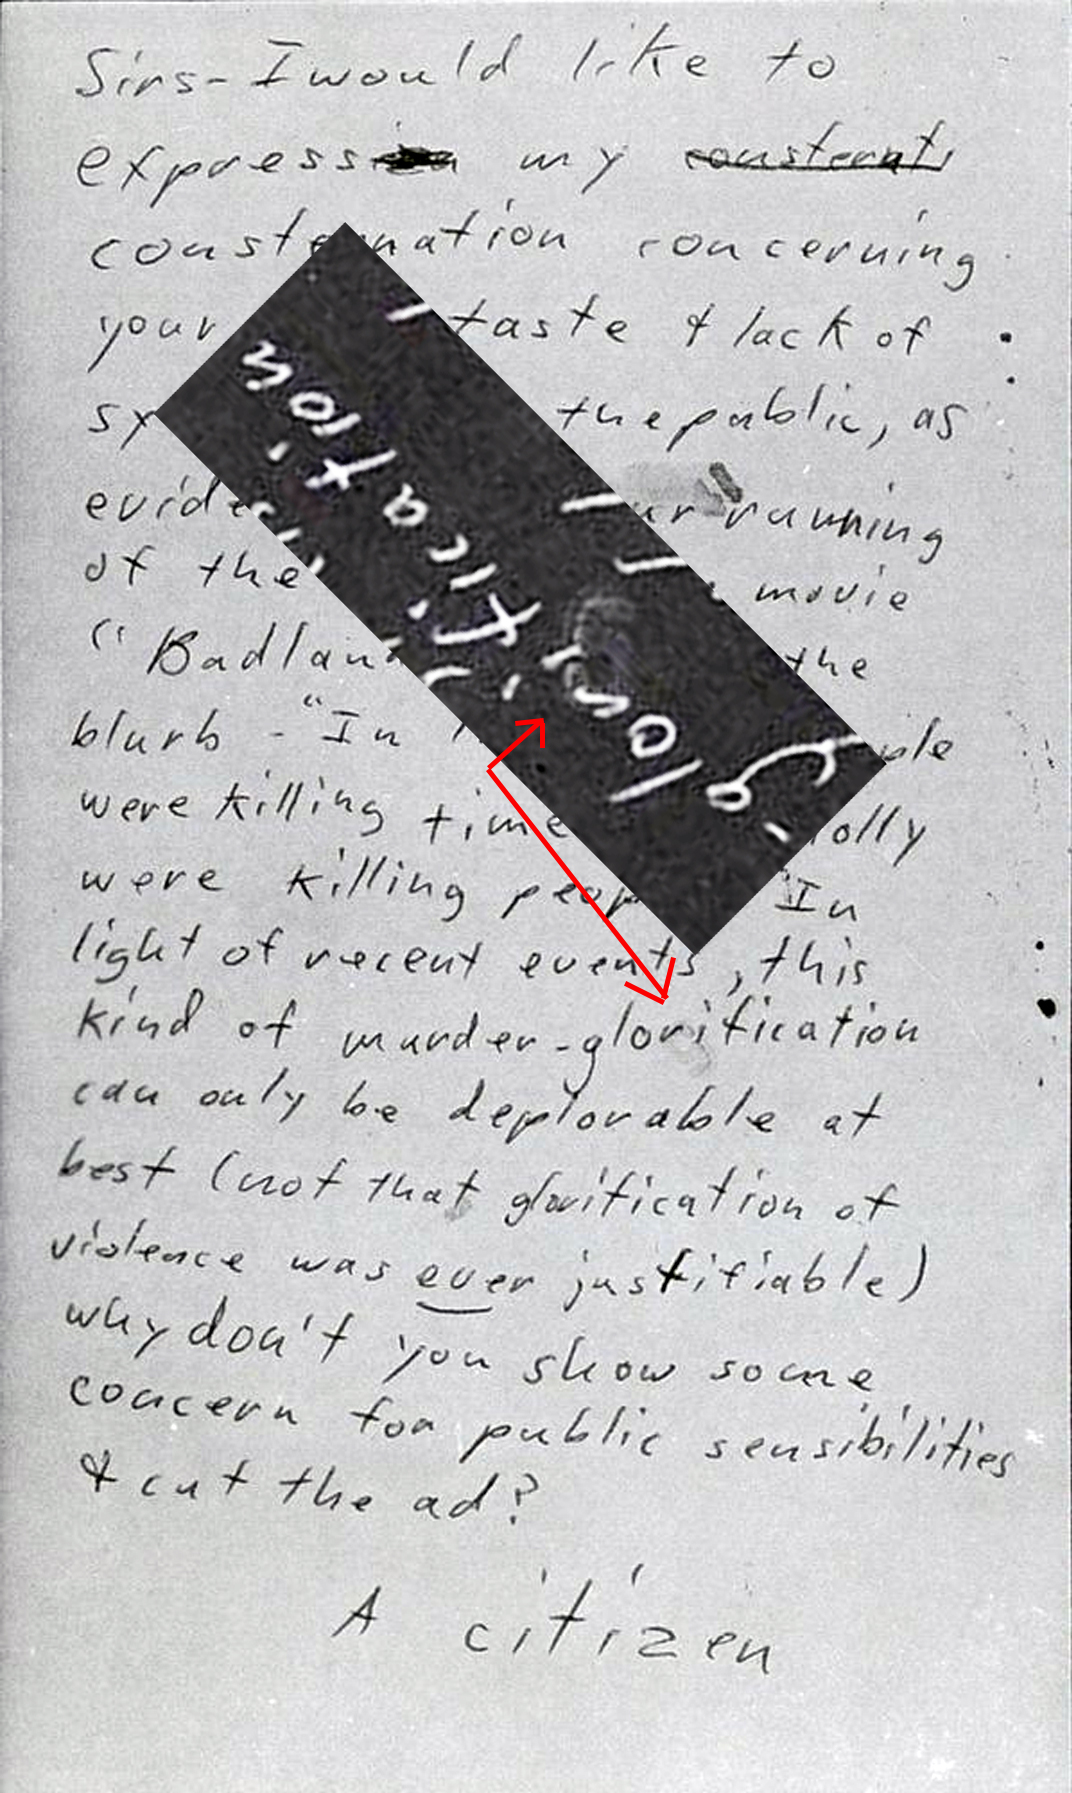 Sirs- I would like to
express my consternati
consternation concerning
your taste & lack of
the public, as
running
of the movie
"Badlands the
blurb - "In
were killing time
were killing In
light of recent events, this
kind of murder-glorification
can only be deplorable at
best (not that glorification of
violence was ever justifiable)
why don't you show some
concern for public sensibilities
& cut the ad?
A citizen
-glorification